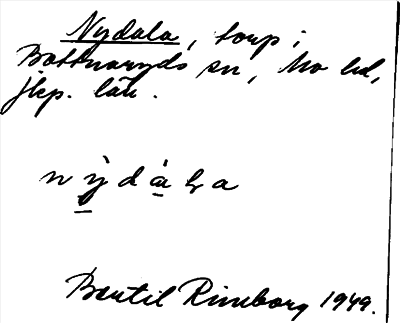 Nydala, torp i
Bottnaryds sn, Mo hd,
jkp. län.
nỳdàla
Bertil Rimborg 1949.